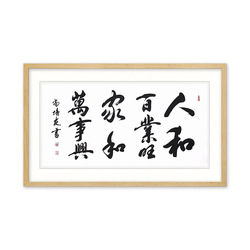 人和
百業旺
家和
萬事興